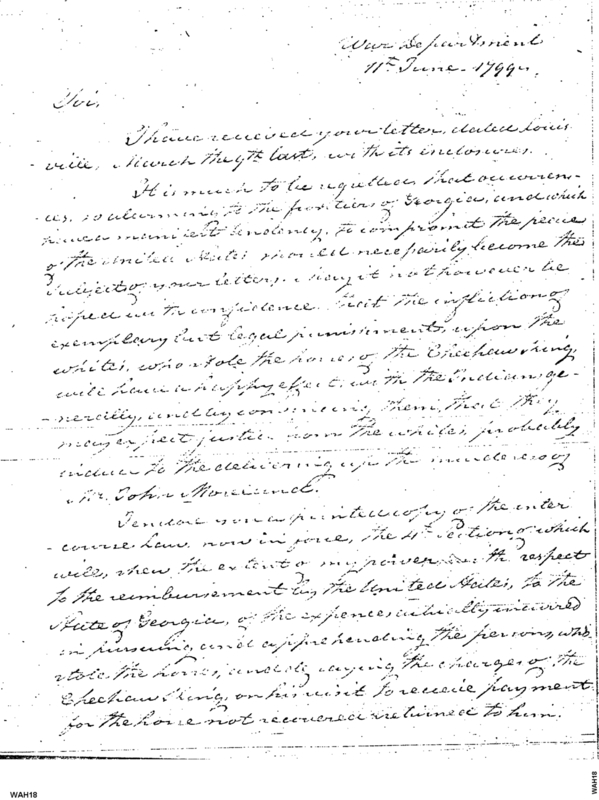 War Department
11th June 1799.
Sir,
I have received your letter, dated Louis
-ville, March the 9th last, with its enclosures.
It is much to be regretted that occurren-
ces, so alarming to the frontiers of Georgia, and which
have a manifest tendency, to compromit the peace
of the United States should necessarily become the
subject of your letters. May it not however be
hoped with confidence that the infliction of
exemplary but legal punishments, upon the
whites, who stole the horses of the Cheehaw King,
will have a happy effect, with the Indians ge-
-nerally, and by convincing them, that they
may expect justice from the whites, probably
induce to the delivering up the murderers of
Mr. John Moreland.
I enclose you a printed copy of the inter
-course Law now in force, the 4th Section of which
will, shew the extent of my power with respect
to the reimbursement by the United States, to the
State of Georgia, of the expences actually incurred
in pursuing and apprehending the persons, who
stole the horses, and defraying the charges of the
Cheehaw King, on his visit to receive payment
for the horse not recovered & returned to him.
WAH18
WAH18